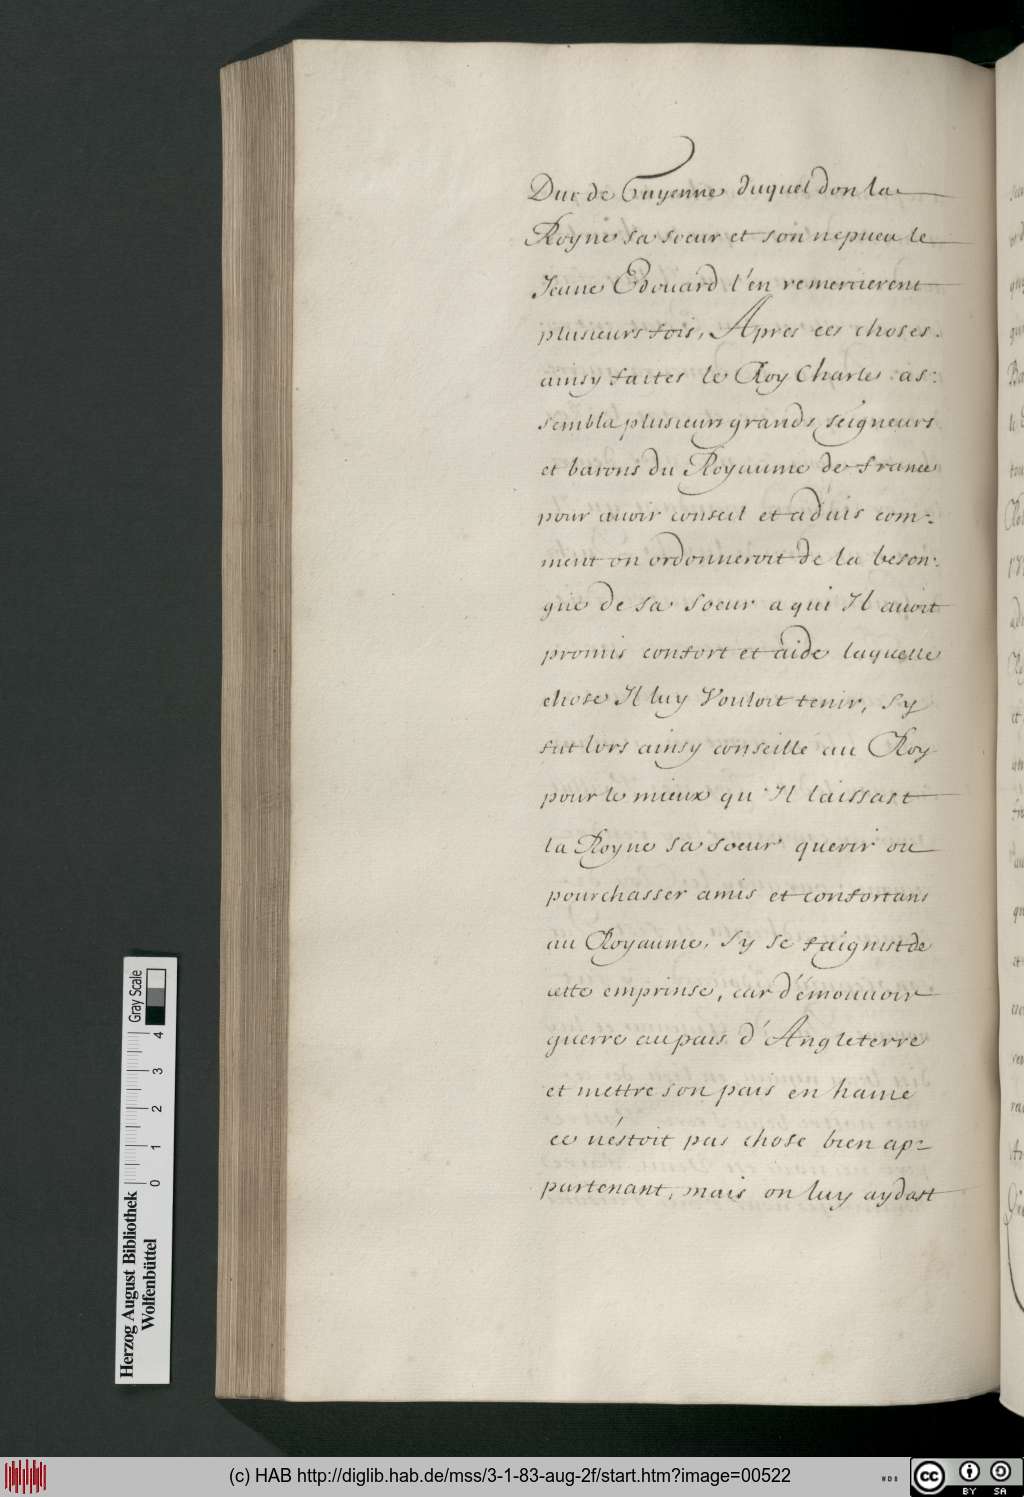 Duc de Guyenne duquel don la
Royne sa soeur et son nepueu le
Jeune Edouard l'en remercierent
plusieurs fois, Apres ces choses
ainsy faites le Roy Charle as:
sembla plusieurs grands seigneurs
et barons du Royaume de france
pour auoir conseil et aduis com:
ment on ordonneroit de la beson:
gne de sa soeur a qui Il auoit
promis confort et aide laquelle
chose Il luy Vouloit tenir, Sy
fut lors ainsy conseillé au Roy
pour le mieux qu'Il laissast
la Royne sa soeur querir ou
pourchasser amis et confortans
au Royaume, Sy se faignist de
cette emprinse, car d'émouuoir
guerre au pais d'Angleterre
et mettre son pais en haine
ce n'éstoit pas chose bien ap=
partenant, mais on luy aydast
Gray Scale
0 1 2 3 4
Herzog August Bibliothek
Wolfenbüttel
(c) HAB http://diglib.hab.de/mss/3-1-83-aug-2f/start.htm?image=00522
cc BY SA